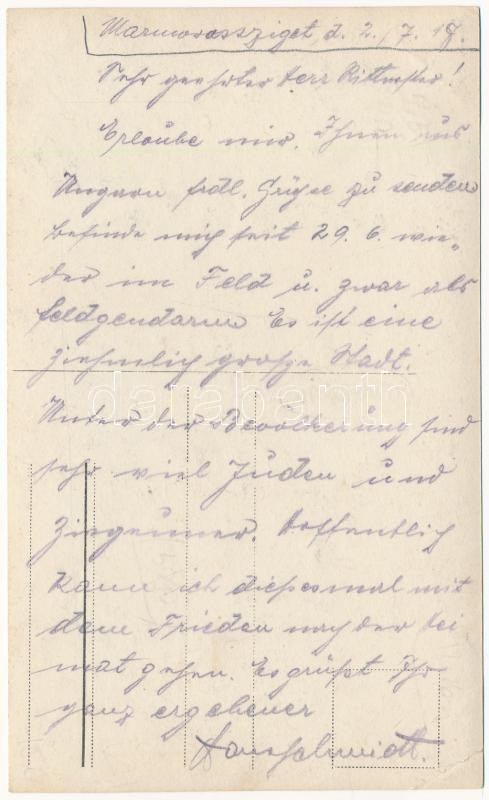 Marmarossziget, d. 2./7. 17.
Sehr geehrter Herr Rittmster!
Erlaube mir, Ihnen aus
Ungarn frdl. Grüße zu senden
befinde mich seit 29. 6. wie„
der im Feld u. zwar als
Feldgendarm Es ist eine
ziehmlich große Stadt.
Unter der Bevölkerung sind
sehr viel Juden und
Ziegeuner. Hoffentlich
kann ich diehsesmal mit
dem Frieden nach der Hei
mat gehen. Es grüßt Ihr
ganz ergebener
Hansschmidt.
darabanth